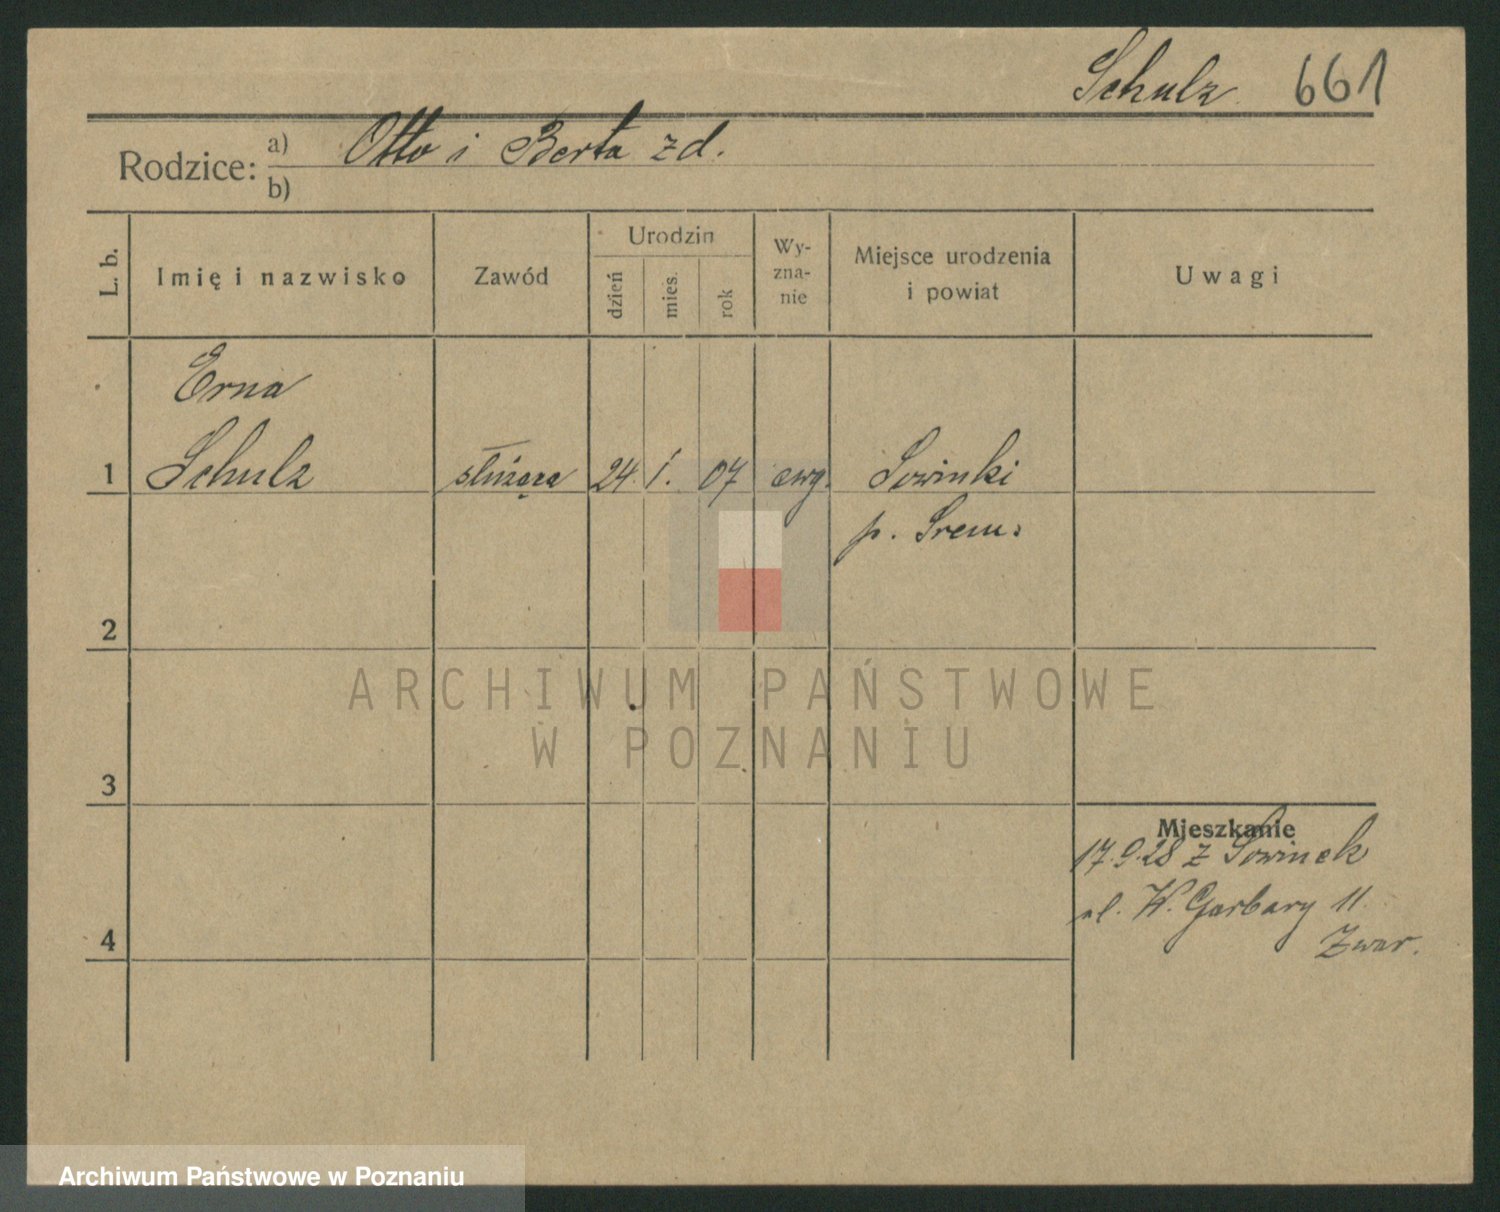 Schulz 661
Rodzice: a) Otto i Berta zd.
b)
L. b.
Imię i nazwisko
Zawód
Urodzin
dzień
mies.
rok
Wy-
zna-
nie
Miejsce urodzenia
i powiat
Uwagi
Erna
1 Schulz służąca 24. 1. 07 ewg. Sowinki
p. Srem.
2
ARCHIWUM PAŃSTWOWE
W POZNANIU
3
Mieszkanie
17.9.28 z Sowinek
ul. W. Garbary 11
4
Archiwum Państwowe w Poznaniu